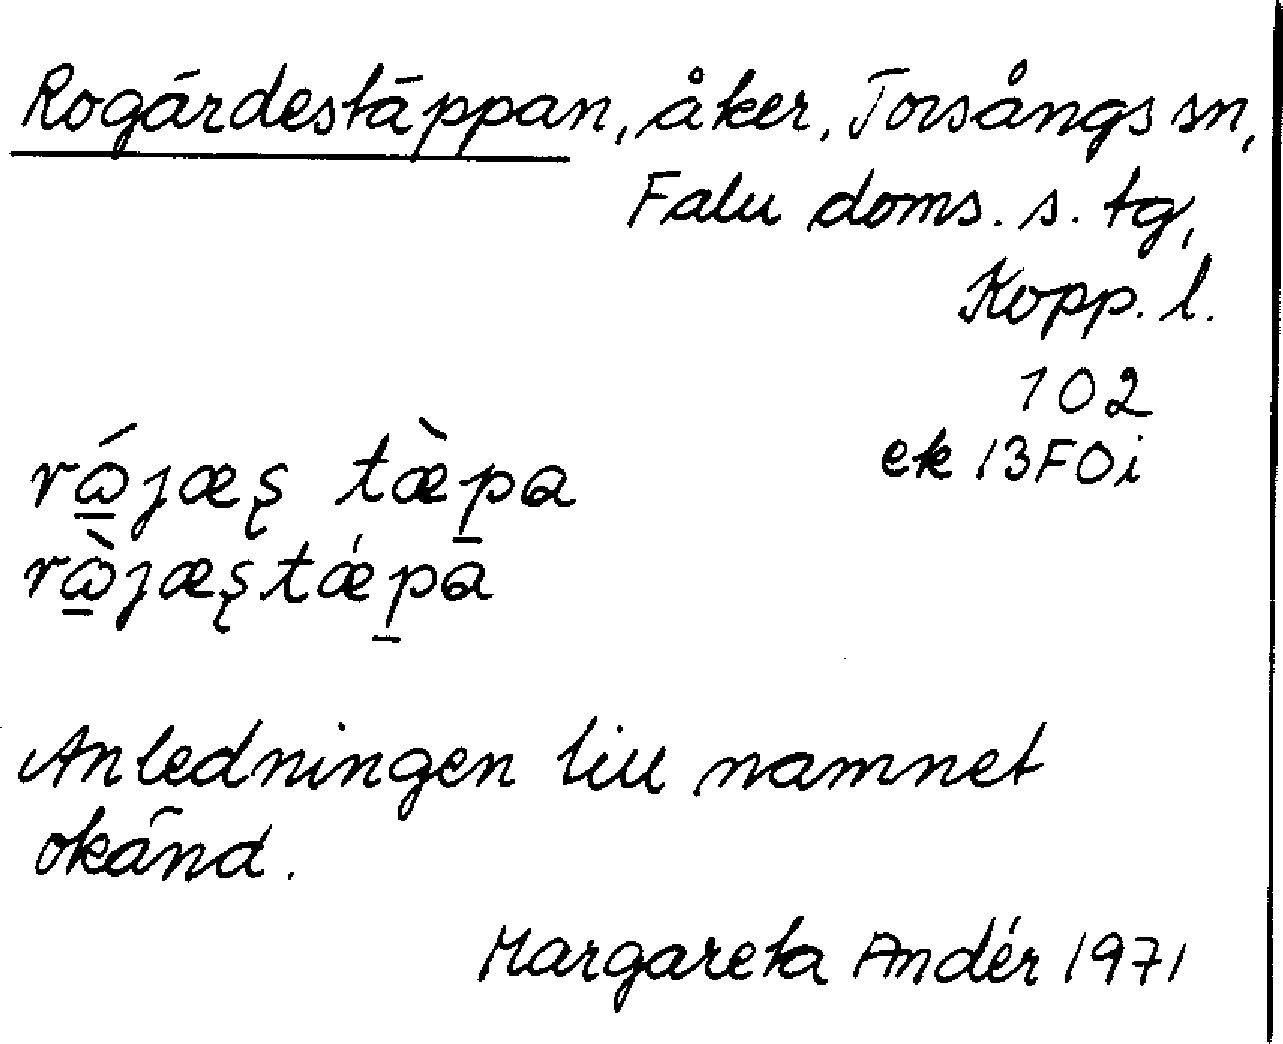 Rogärdestäppan, åker, Torsångs sn,
Falu doms. s. tg,
Kopp. l.
102
ek 13F0i
rώ̲jæş tæ̀p̲a
rὼ̲jæştǽp̲a
Anledningen till namnet
okänd.
Margareta Andér 1971